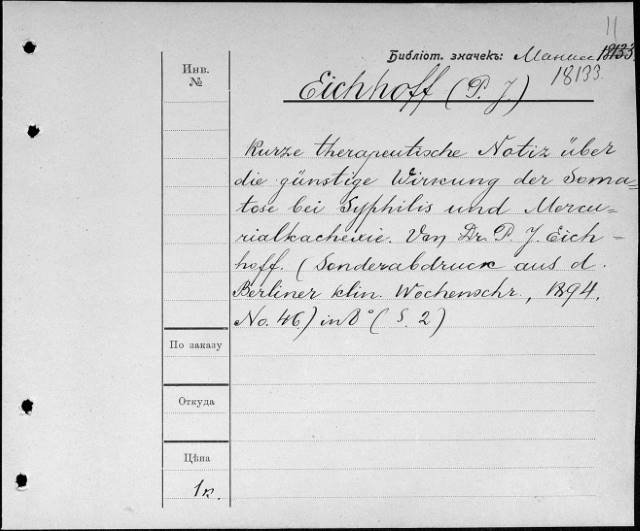 11
Библіот. значекъ: 18133
18133
Инв.
№
Eichhoff (P. J.)
Kurze therapeutische Notiz über
die günstige Wirkung der Soma=
tose bei Syphilis und Mercu=
rialkachexie. Von Dr. P. J. Eich-
hoff. (Sonderabdruck aus d.
Berliner klin. Wochenschr., 1894,
No. 46) in 8° (S. 2)
По заказу
Откуда
Цѣна
1к.